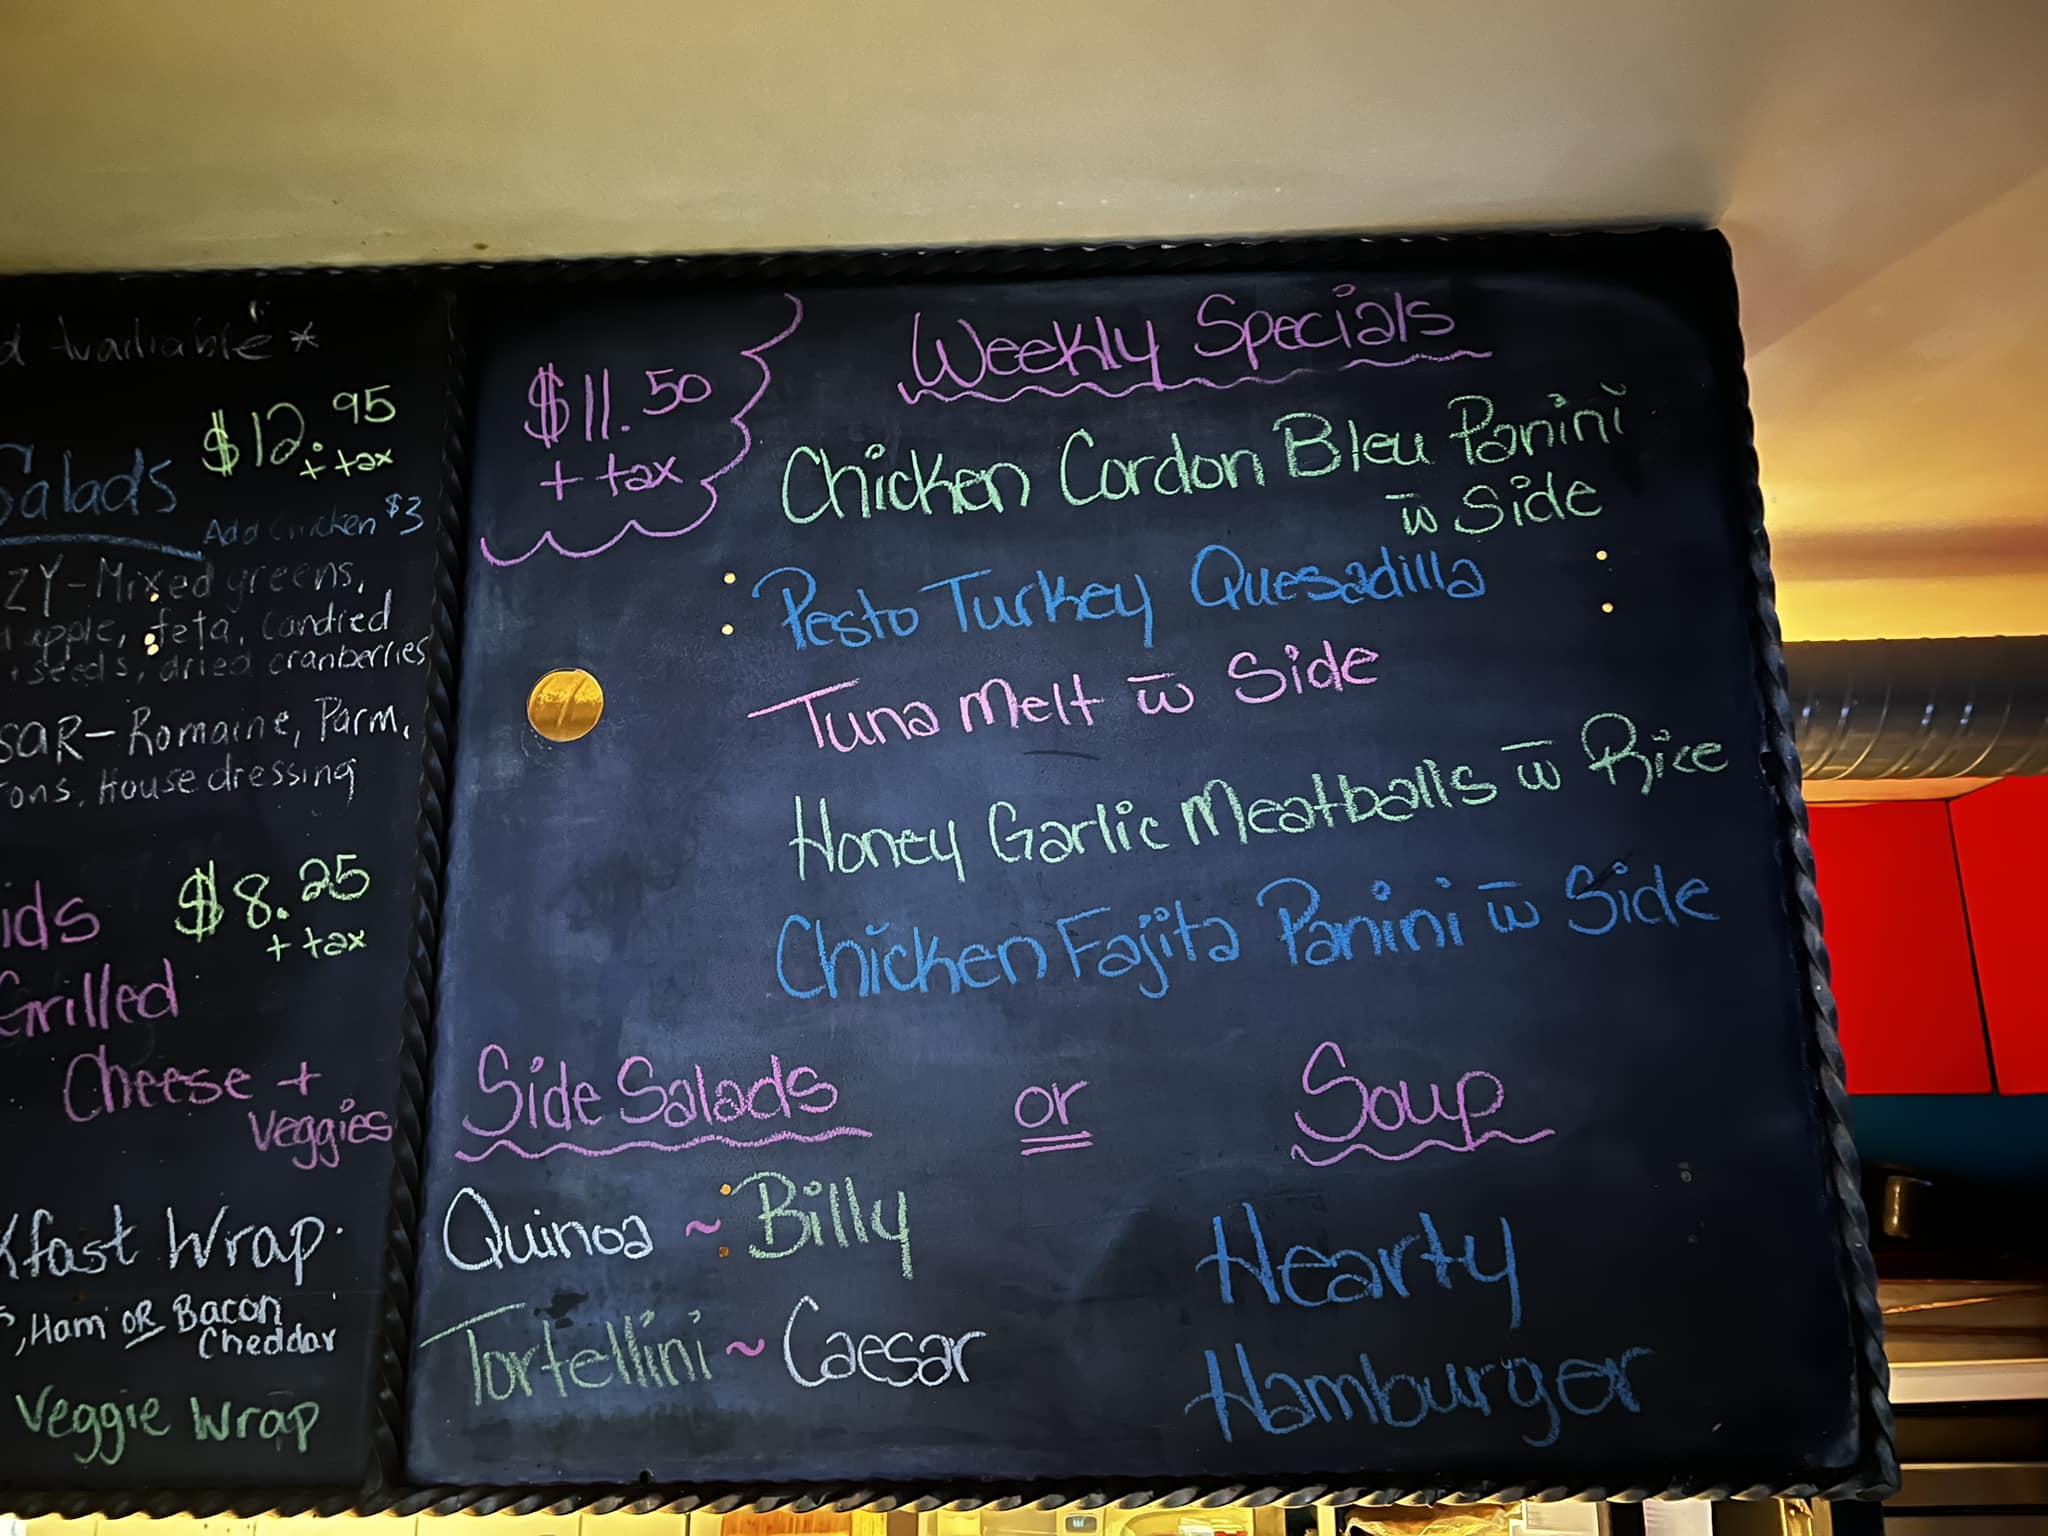 $12.95
+ tax
Salads
Add Chicken $3
ZY-Mixed greens,
apple, feta, Candied
seeds, dried cranberries
SAR-Romaine, Parm,
ons, House dressing
ids
$8.25
+ tax
Grilled
Cheese +
Veggies
kfast Wrap
, Ham OR Bacon
Cheddar
Veggie Wrap
Weekly Specials
$11.50
+ tax
Chicken Cordon Bleu Panini
w̅ Side
Pesto Turkey Quesadilla
Tuna Melt w̅ Side
Honey Garlic Meatballs w̅ Rice
Chicken Fajita Panini w̅ Side
Side Salads or Soup
Quinoa ~ Billy
Tortellini ~ Caesar
Hearty
Hamburger